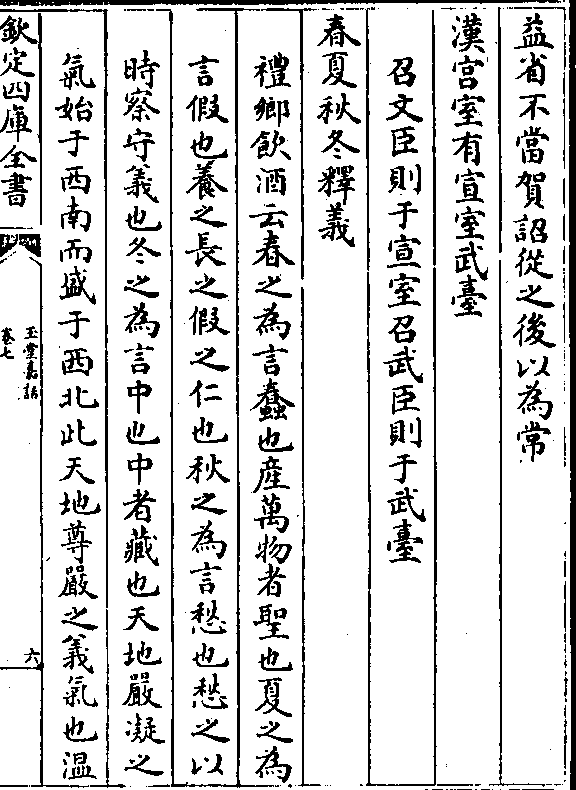 益省不當賀詔從之後以為常
漢宫室有宣室武臺
召文臣則于宣室召武臣則于武臺
春夏秋冬釋義
禮鄉飲酒云春之為言蠢也産萬物者聖也夏之為
言假也養之長之假之仁也秋之為言愁也愁之以
時察守義也冬之為言中也中者藏也天地嚴凝之
氣始于西南而盛于西北此天地尊嚴之義氣也温
欽定四庫全書
玉堂嘉話
卷七
六